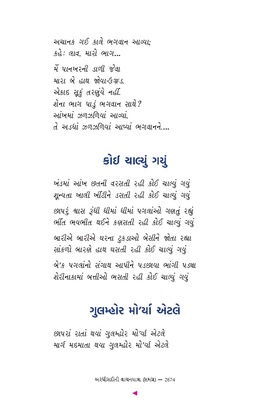 અચાનક ગઈ કાલે ભગવાન આવ્યા;
કહે: લાવ, મારો ભાગ...
મેં પાનખરની ડાળી જેવા
મારા બે હાથ જોયા-ઉજ્જડ.
એકાદ સૂકું તરણુંયે નહીં.
શેના ભાગ પાડું ભગવાન સાથે?
આંખમાં ઝળઝળિયાં આવ્યાં,
તે અડધાં ઝળઝળિયાં આપ્યાં ભગવાનને....
કોઇ ચાલ્યું ગયું
ખંડમાં આંખ છતની વરસતી રહી કોઈ ચાલ્યું ગયું
શૂન્યતા ખાલી ખીંટીને ડસતી રહી કોઈ ચાલ્યું ગયું
છાપરું શ્વાસ રૂંધી ધીમાં ધીમાં પગલાંઓ ગણતું રહ્યું
ભીંત ભયભીત થઈને કણસતી રહી કોઈ ચાલ્યું ગયું
બારીએ બારીએ ઘરના ટુકડાઓ બેસીને જોતા રહ્યા
સાંકળો બારણે હાથ ઘસતી રહી કોઈ ચાલ્યું ગયું
બે'ક પગલાંનો સંગાથ આપીને પડછાયા ભાંગી પડ્યા
શેરીનાકામાં બત્તીઓ ભસતી રહી કોઈ ચાલ્યું ગયું
ગુલમ્હોર મો'ર્યા એટલે
છાપરાં રાતાં થયાં ગુલમ્હોર મો'ર્યા એટલે
માર્ગ મદમાતા થયા ગુલમ્હોર મો'ર્યા એટલે